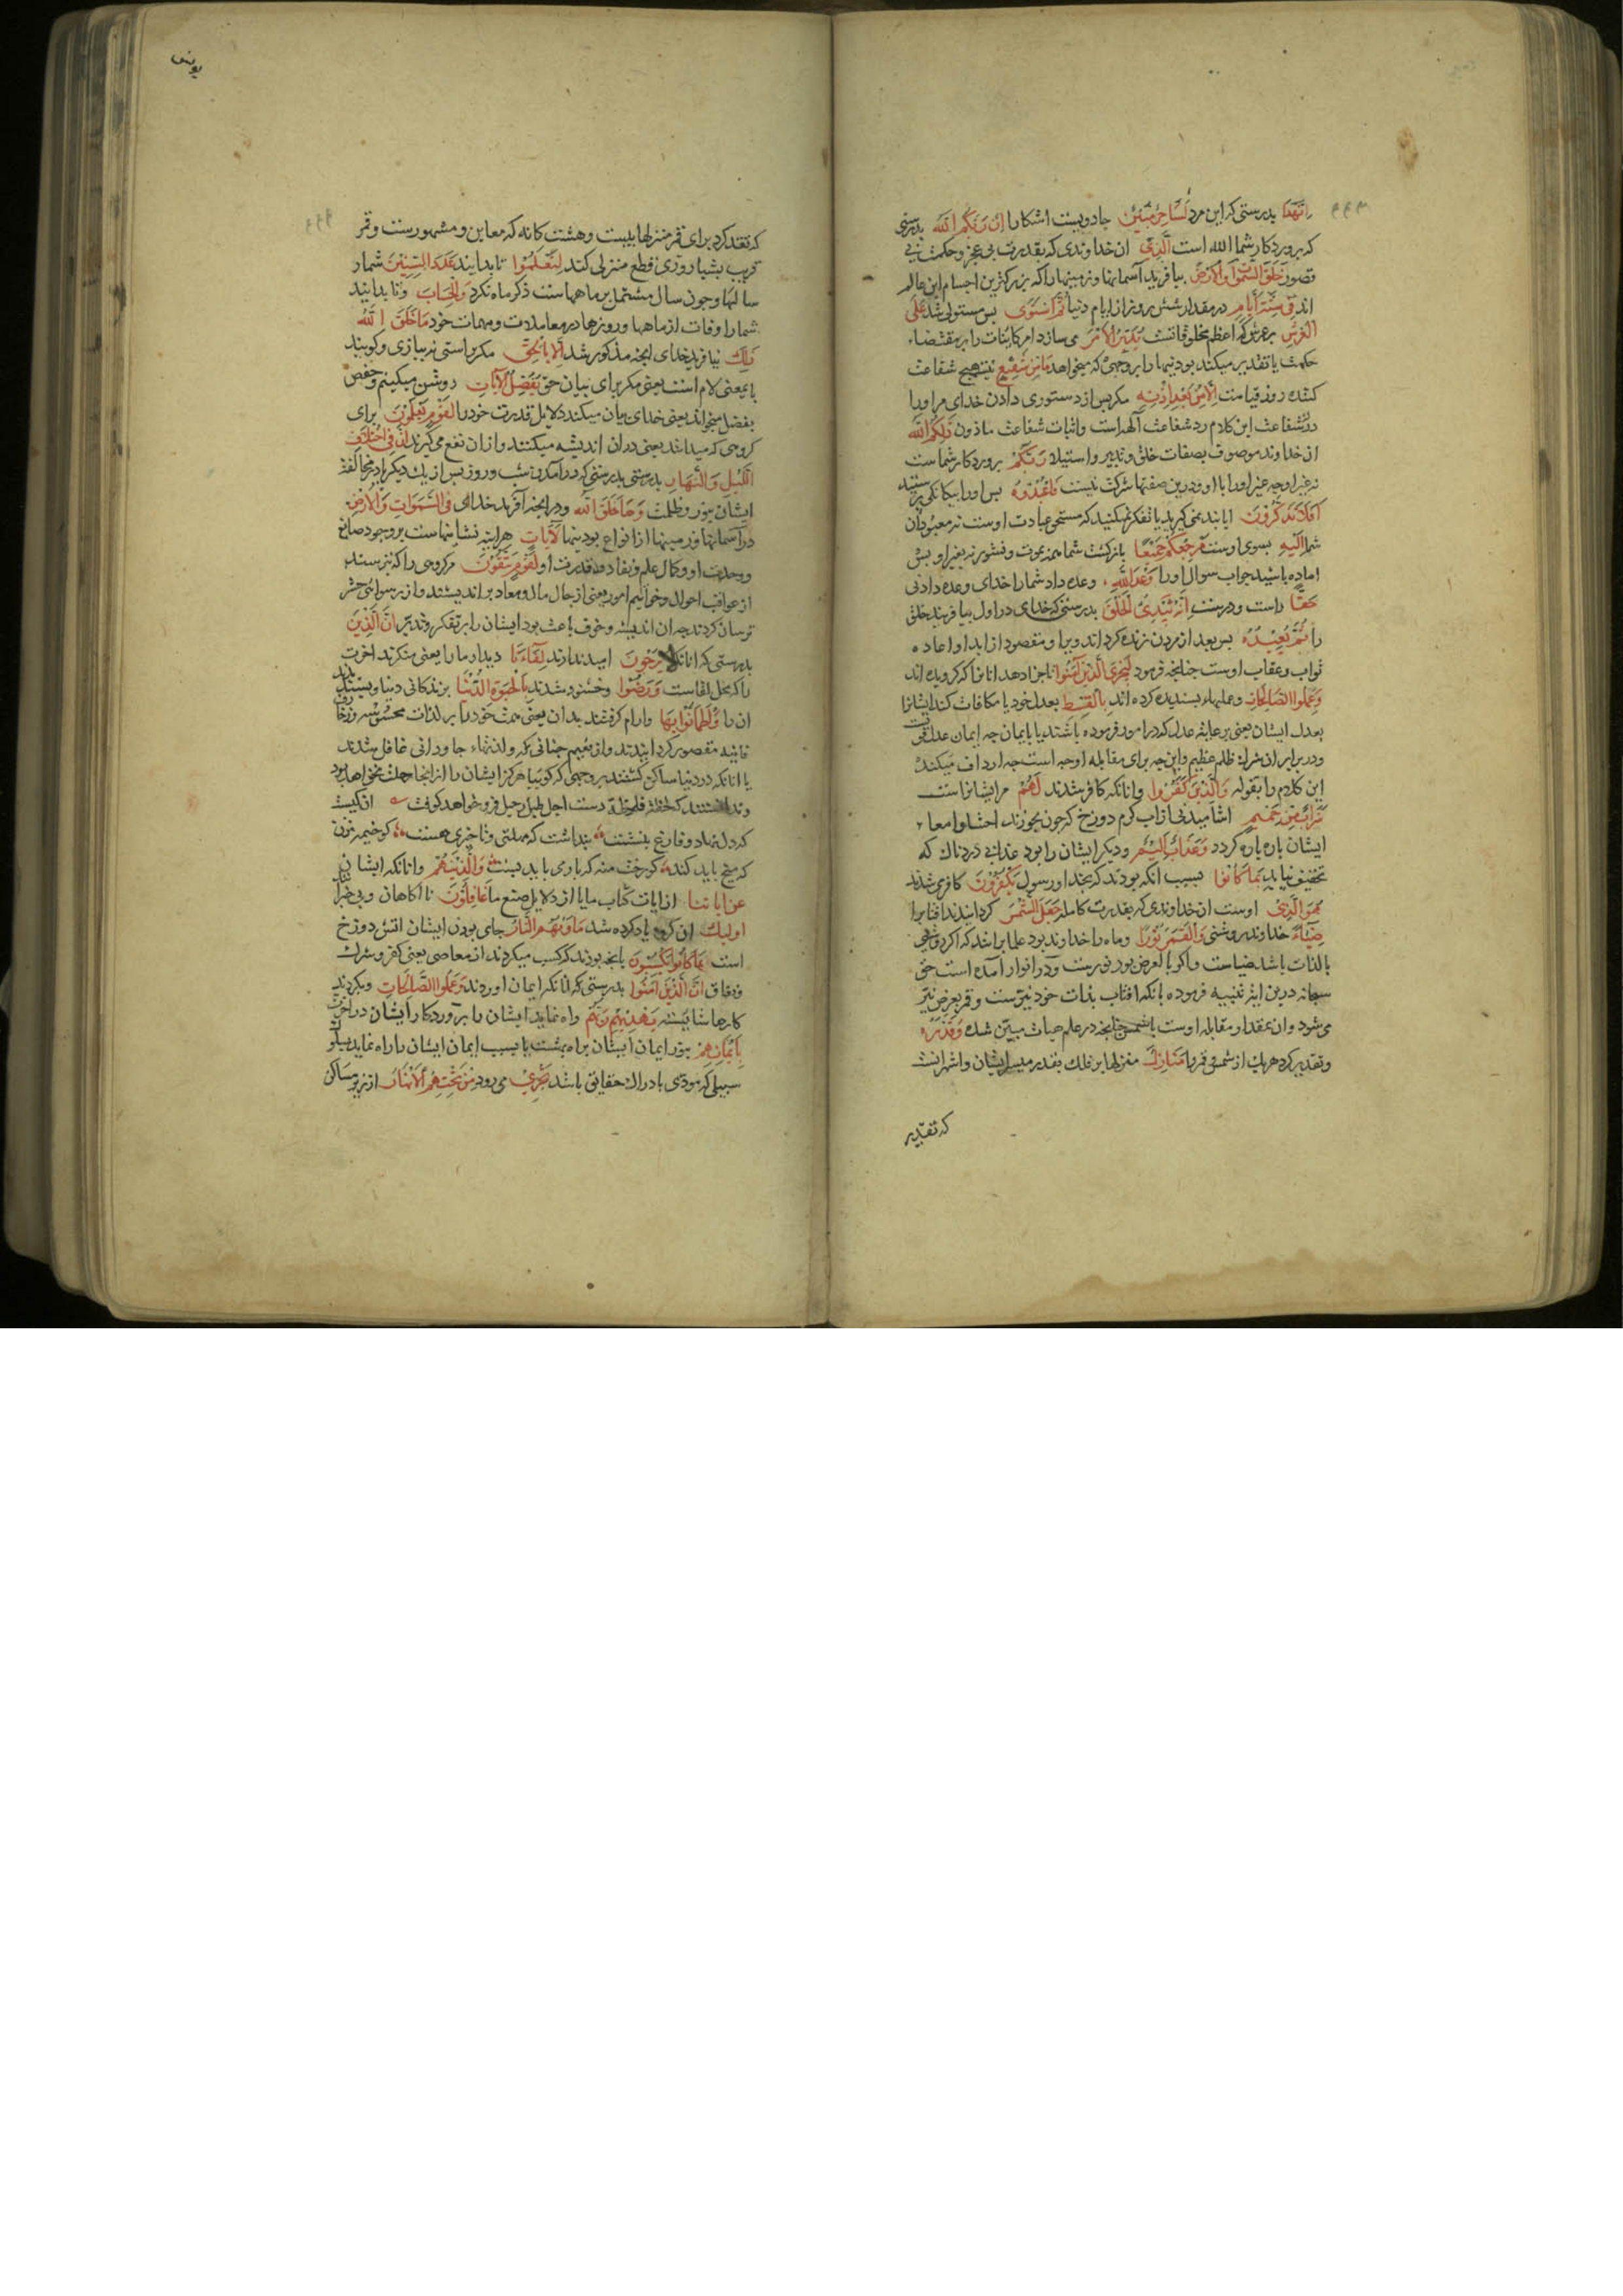 ان هذا بدرستی که این مرد لساحر مبین جادوییست اشکارا ان ربکم الله بدرستی
که پروردکار شما الله است الذی ان خداوندی که بقدرت بی عجز و حکمت بی
قصور خلق السموات والارض بیافرید آسمانها و زمینها را که بزرکترین اجسام این عالم
اند فی ستة ایام در مقدار شش روز از ایام دنیا ثم استوی بس مستولی شد علی
العرش بر عرش که اعظم مخلوقاتست یدبر الامر می سازد امر کاینات را بر مقتضاء
حکمت یا تقدیر میکند بودنیها را بر وجهی که میخواهد ما من شفیع نیست هیچ شفاعت
کننده روز قیامت الا من بعد اذنه مکر بس از دستوری دادن خدای مر او را
در شفاعت این کلام رد شفاعت آلهه است و اثبات شفاعت ماذون ذلکم الله
ان خداوند موصوف بصفات خلق و تدبیر و استیلا ربکم پروردکار شماست
نه غیر او چه غیر او را با او در این صفتها شرکت نیست فاعبدوه بس او را بیکانکی پرستید
افلا تذکرون ایا پند نمی کیرید یا تفکر نمیکنید که مستحق عبادت اوست نه معبودان
شما الیه بسوی اوست مرجعکم جمیعا بازکشت شما همه بموت و نشور نه بغیر او بس
اماده باشید جواب سوال او را وعد الله وعده داد شما را خدای وعده دادنی
حقا راست و درست انه یبدئ الخلق بدرستی که خدای در اول بیافریند خلق
را ثم یعیده بس بعد از مردن زنده کرداند ویرا و مقصود از ابدا و اعاده
ثواب و عقاب اوست جنانجه فرمود لیجزی الذین آمنوا تا جزا دهد انانرا که کرویده اند
وعملوا الصالحات وعملهاء بسندیده کرده اند بالقسط بعدل خود یا مکافات کند ایشانرا
بعدل ایشان یعنی برعایة عدل که در امور فرموده باشند یا بایمان چه ایمان عدل
و در برابر ان شرک ظلم عظیم و این چه برای مقابله اوجه است چه ارداف میکند
این کلام را بقوله والذین کفروا و انانکه کافر شدند لهم مر ایشانراست
شراب من حمیم اشامیدنی از آب کرم دوزخ که چون بخورند احشا و امعاء
ایشان پاره پاره کردد وعذاب الیم و دیکر ایشان را بود عذابی دردناک که
تخفیف نیابد بما کانوا بسبب انکه بودند که بخدا و رسول یکفرون کافر می شدند
هو الذی اوست ان خداوندی که بقدرت کامله جعل الشمس کردانید افتاب را
ضیاء خداوند روشنی والقمر نورا و ماه را خداوند نور علما برانند که اکر روشنی
بالذات باشد ضیاست و اکر بالعرض بود نورست و در انوار آمده است حق
سبحانه درین ایة تنبیه فرموده بانکه افتاب بذات خود نیرست و قمر بعرض نیر
می شود و ان بمقدار مقابله اوست با شمس جنانجه در علم هیات مبین شده وقدره
و تقدیر کرد هر یک از شمس و قمر را منازل منزلها بر فلک بقدر میسر ایشان و اشهر انست
که تقدیر
یونس
که تقدیر کرد برای قمر منزلها بیست و هشت کانه که معاین و مشهورست و قمر
قریب بشبانروزی قطع منزلی کند لتعلموا تا بدانید عدد السنین شمار
سالها و چون سال مشتمل بر ماههاست ذکر ماه نکرد والحساب و تا بدانید
شمار اوقات از ماهها و روزها در معاملات و مهمات خود ما خلق الله
ذلک نیافرید خدای انچه مذکور شد الا بالحق مکر براستی نه ببازی و کویند
با بمعنی لام است یعنی مکر برای بیان حق یفصل الآیات روشن میکنیم و حفص
یفصل میخواند یعنی خدای بیان میکند دلایل قدرت خود را لقوم یعلمون برای
کروهی که میدانند یعنی در ان اندیشه میکنند و از ان نفع می کیرند ان فی اختلاف
اللیل والنهار بدرستی بدرستی که در آمدن شب و روز بس از یک دیکر یا در مخالفت
ایشان بنور و ظلمت وما خلق الله و در انچه آفرید خدای فی السموات والارض
در آسمانها و زمینها از انواع بودنیها لآیات هر اینه نشانیهاست بر وجود صانع
و وحدت او و کمال علم و نفاد قدرت او لقوم یتقون مر کروهی را که بترسند
از عواقب احوال و خواتیم امور یعنی از حال مال و معاد بر اندیشند و از رسوائی حشر
ترسان کردند چه ان اندیشه و خوف باعث بود ایشان را بر تفکر و تدبر ان الذین
بدرستی که انانکه لا یرجون امید ندارند لقاءنا دیدار ما را یعنی منکرند اخرت
را که محل لقاست ورضوا و خشنود شدند بالحیوة الدنیا بزندکانی دنیا و بسندیدند
ان را واطمأنوا بها و ارام کرفتند بدان یعنی همت خود را بر لذات محسوسه و زخارف
فانیه مقصور کردانیدند و از نعیم جنانی و لذتهاء جاودانی غافل شدند
یا انانکه در دنیا ساکن کشتند بر وجهی که کوییا هرکز ایشان را از انجا رحلت نخواهد بود
و ندانستند که لحظه فلحظه دست اجل طبل رحیل فرو خواهد کوفت ان کیست
که دل نهاد و فارغ بنشست پنداشت که مهلتی و تاخیری هست کو خیمه مزن
که میخ باید کند کو رخت منه که بار می باید بست والذین هم و انانکه ایشان
عن آیاتنا از ایات کتاب ما یا از دلایل صنع ما غافلون ناآکاهان و بی خبرانند
اولئک ان کروه یاد کرده شد مأویهم النار جای بودن ایشان اتش دوزخ
است بما کانوا یکسبون بانچه بودند که کسب میکردند از معاصی یعنی کفر و شرک
و نفاق ان الذین آمنوا بدرستی که انانکه ایمان اوردند وعملوا الصالحات و بکردند
کارها شایسته یهدیهم ربهم راه نماید ایشان را پروردکار ایشان در اخرت
بایمانهم بنور ایمان ایشان براه بهشت یا بسبب ایمان ایشان را راه نماید بسلوک
سبیلی که مودی بادراک حقایق باشد تجری می رود من تحتهم الانهار از زیر مساکن